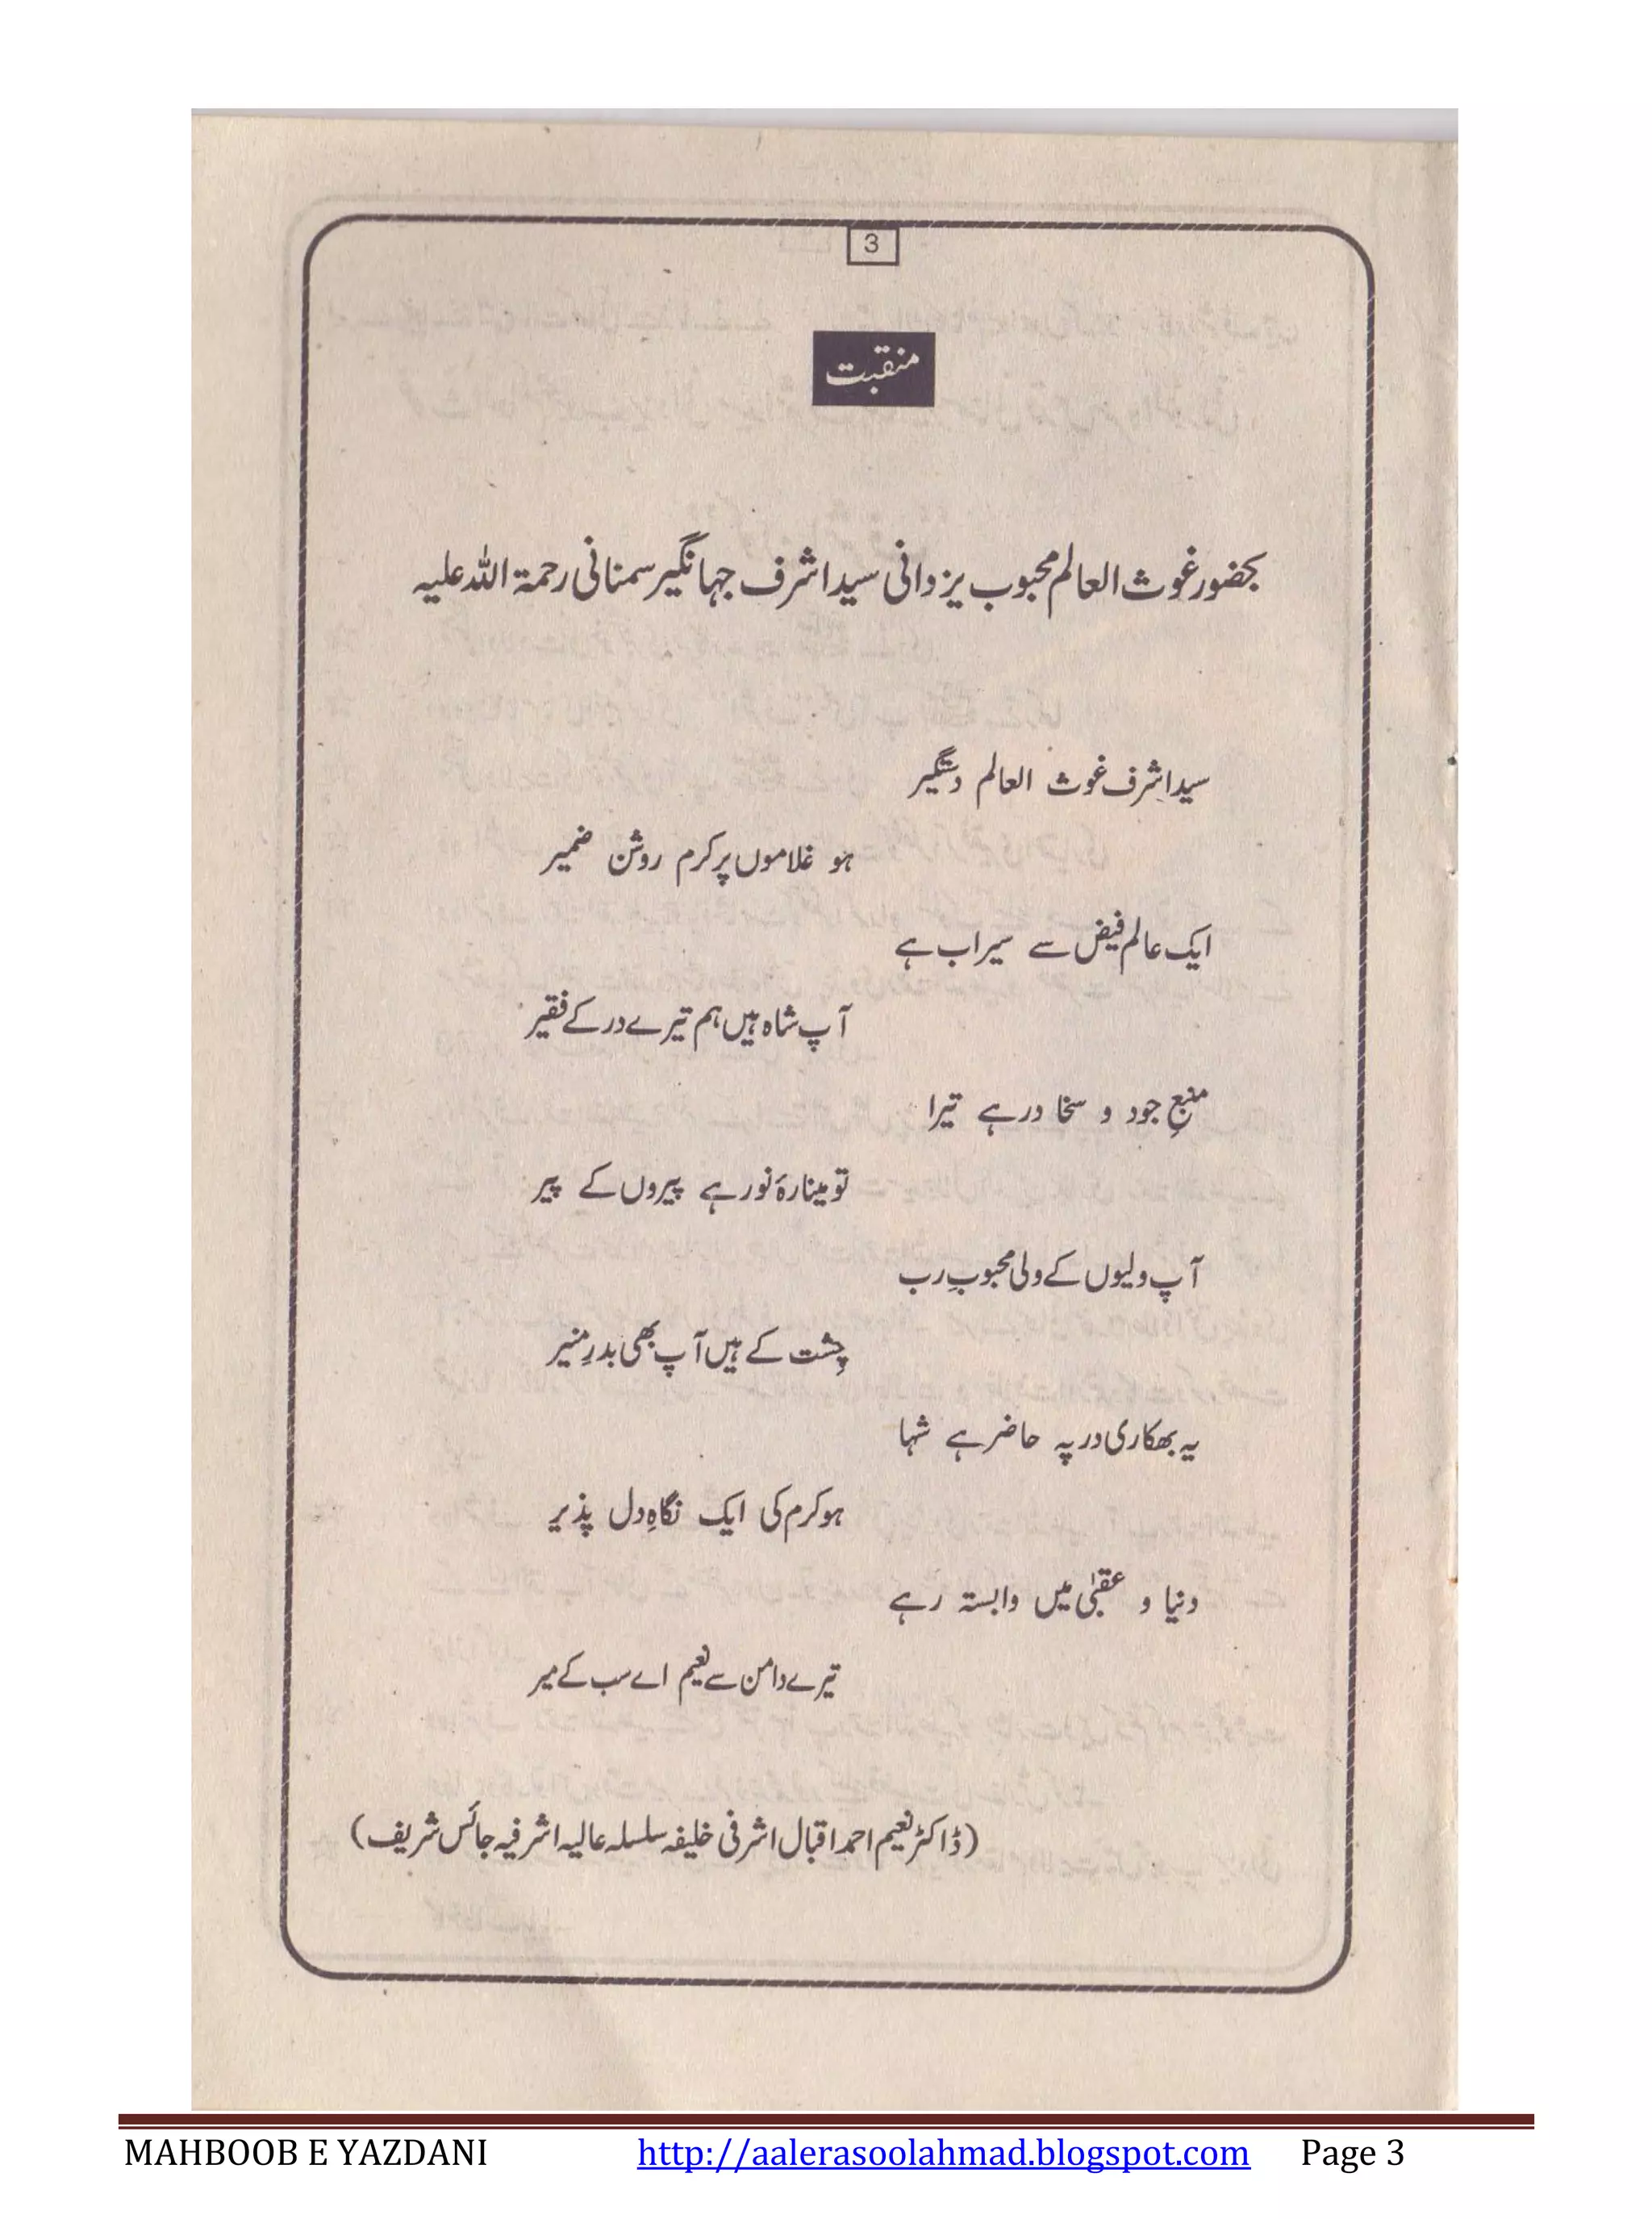 3
منقبت
بحضور غوث العالم محبوب یزدانی سید اشرف جہانگیر سمنانی رحمۃ اللہ علیہ
سید اشرف غوث العالم دستگیر
ہو غلاموں پر کرم روشن ضمیر
ایک عالم فیض سے سیراب ہے
آپ شاہ ہیں ہم تیرے در کے فقیر
منبعِ جود و سخا در ہے تیرا
تو مینارۂ نور ہے پیروں کے پیر
آپ ولیوں کے ولی محبوبِ رب
چِشت کے ہیں آپ بھی بدرِ منیر
یہ بھکاری در پہ حاضر ہے شہا
ہو کرم کی ایک نگاہِ دل پذیر
دنیا و عقبیٰ میں وابستہ رہے
تیرے دامن سے نعیم اے سب کے میر
(ڈاکٹر نعیم احمد اقبال اشرفی خلیفہ سلسلہ عالیہ اشرفیہ جائس شریف)
MAHBOOB E YAZDANI http://aalerasoolahmad.blogspot.com Page 3